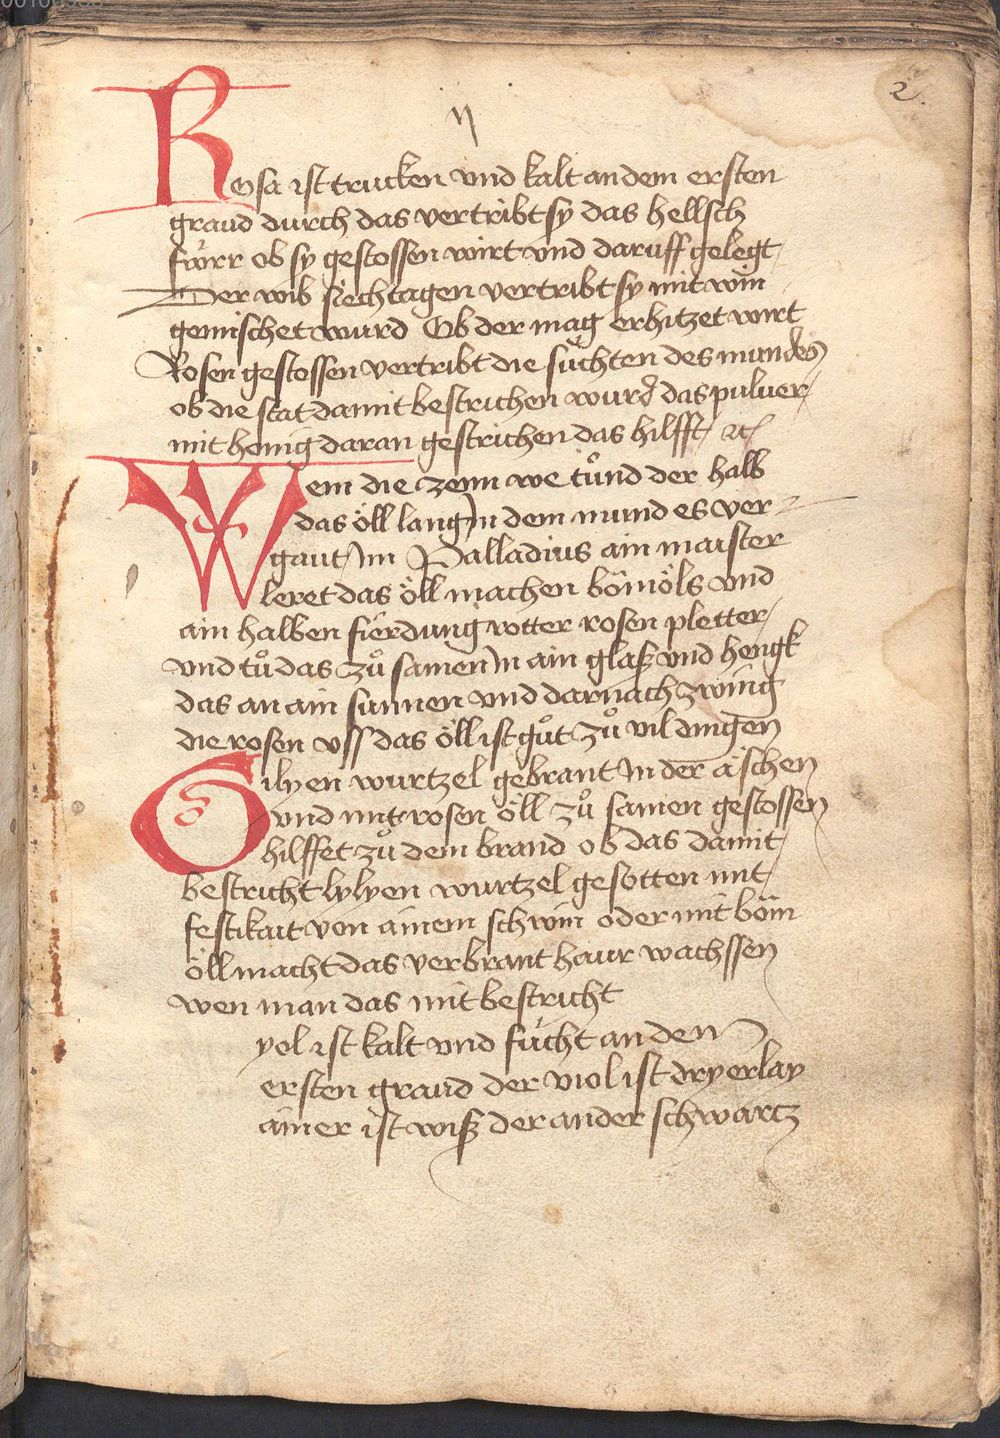 ij
2.
Rosa ist trucken vnd kalt an dem ersten
graud durch das vertribt sy das hellsch
fwrr ob sy gestossen wirt vnd daruff gelegt
Der wib siechtagen vertribt sy mit win
gemischet wurd Ob der mag erhitzet wirt
Rosen gestossen vertribt die süchten des mundes
ob die stat damit bestrichen wurd das puluer
mit honig daran gestrichen das hilfft
Wem die zenn we tůnd der halb
das öll lang in dem mund es ver
gaut im Palladius ain maister
leret das öll machen bömöls vnd
ain halben fierdung rotter rosen pletter
vnd tů das zů samen in ain glaß vnd hengk
das an ain sunnen vnd darnach zwing
die rosen vss das öll ist gůt zů vil dingen
Gilyen wurtzel gebrant in der äschen
vnd mit rosen öll zů samen gestossen
hilffet zů dem brand ob das damit
bestricht lylyen wurtzel gesotten mit
festikait von ainem schwin oder mit böm
öll macht das verbrant haur wachssen
wen man das mit bestricht
yol ist kalt vnd fücht an dem
ersten graud der viol ist dryerlay
ainer ist wiß der ander schwartz